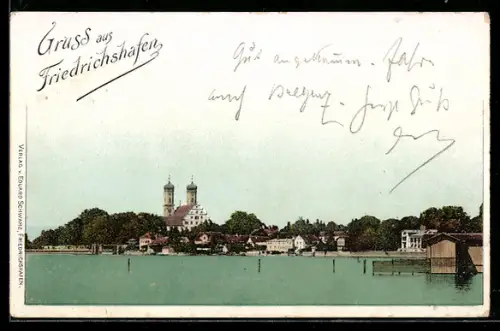 Gruss aus
Friedrichshafen
Gut angekommen. Fahre
nach Bregenz. Herzl. Gruß
VERLAG V. EDUARD SCHWARZ, FRIEDRICHSHAFEN.